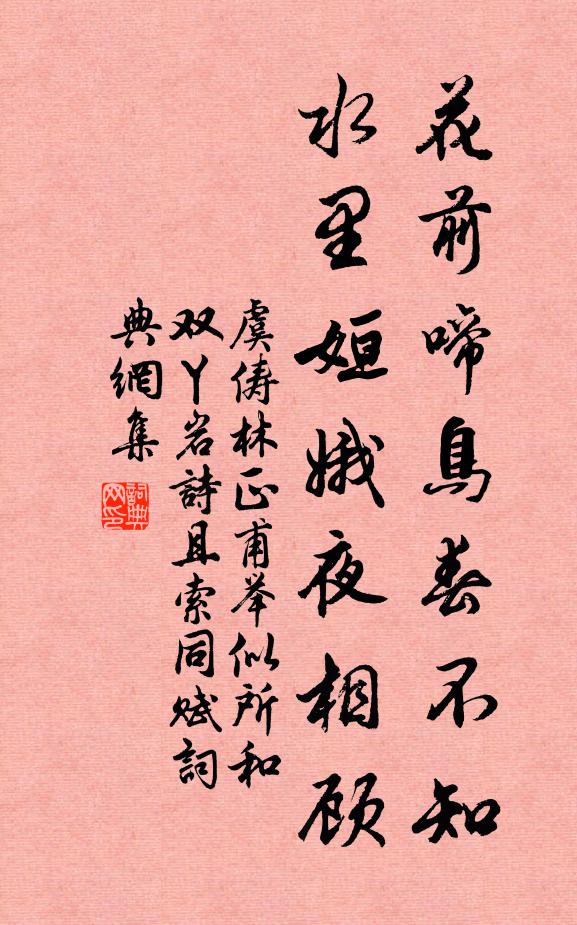 花前啼鳥春不知
水里姮娥夜相顾
虞俦林正甫举似所和
双丫岩詩且索同赋詞
典網集
詞典网印